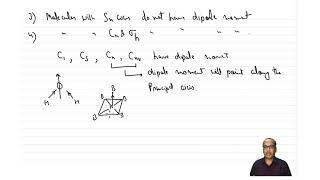 3) Molecules with Sn axis do not have dipole moment
4) " " Cn & σh " " " "
C1, Cs, Cn, Cnv have dipole moment
dipole moment will point along the
Principal axis.
O B
B B
H H B B